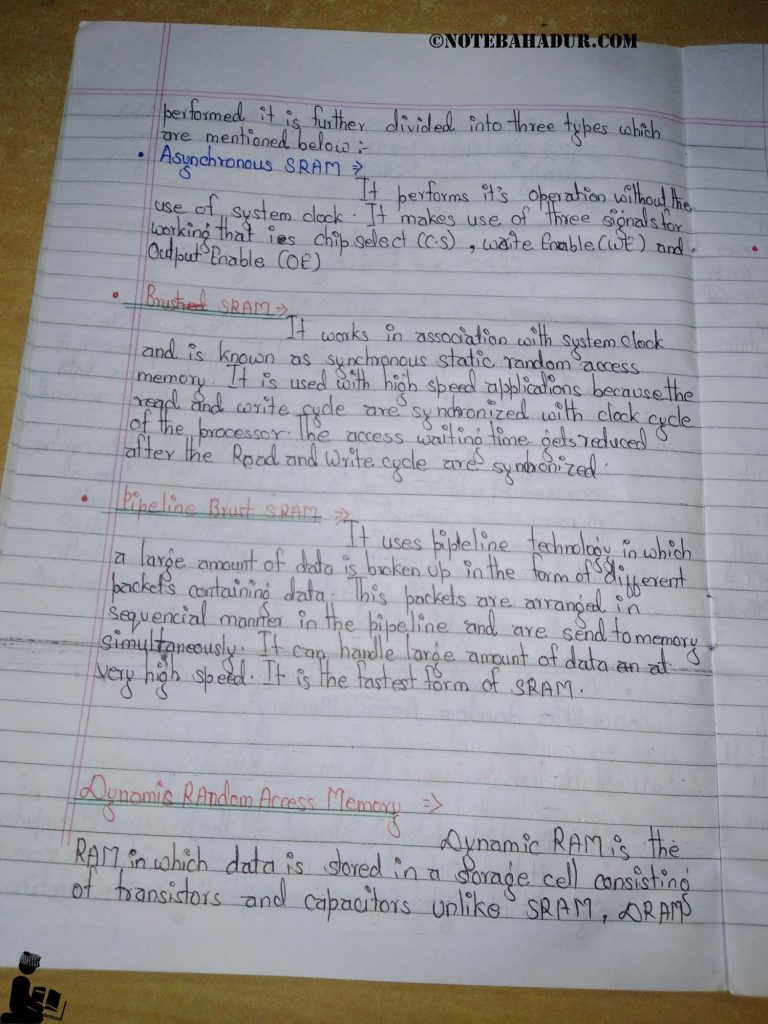 ©NOTEBAHADUR.COM
performed it is further divided into three types which
are mentioned below :-
• Asynchronous SRAM ⇒
It performs it's operation without the
use of system clock. It makes use of three signals for
working that ies chip select (C.S) , write Enable (WE) and
Output Enable (OE)
• Brusted SRAM ⇒
It works in association with system clock
and is known as synchronous static random access
memory. It is used with high speed applications because the
read and write cycle are synchronized with clock cycle
of the processor. The access waiting time gets reduced
after the Read and Write cycle are synchronized.
• Pipeline Brust SRAM ⇒
It uses pipeline technology in which
a large amount of data is broken up in the form of different
packets containing data. This packets are arranged in
sequencial manner in the pipeline and are send to memory
simultaneously. It can handle large amount of data an at
very high speed. It is the fastest form of SRAM.
Dynamic RAndom Access Memory ⇒
Dynamic RAM is the
RAM in which data is stored in a storage cell consisting
of transistors and capacitors unlike SRAM, DRAM